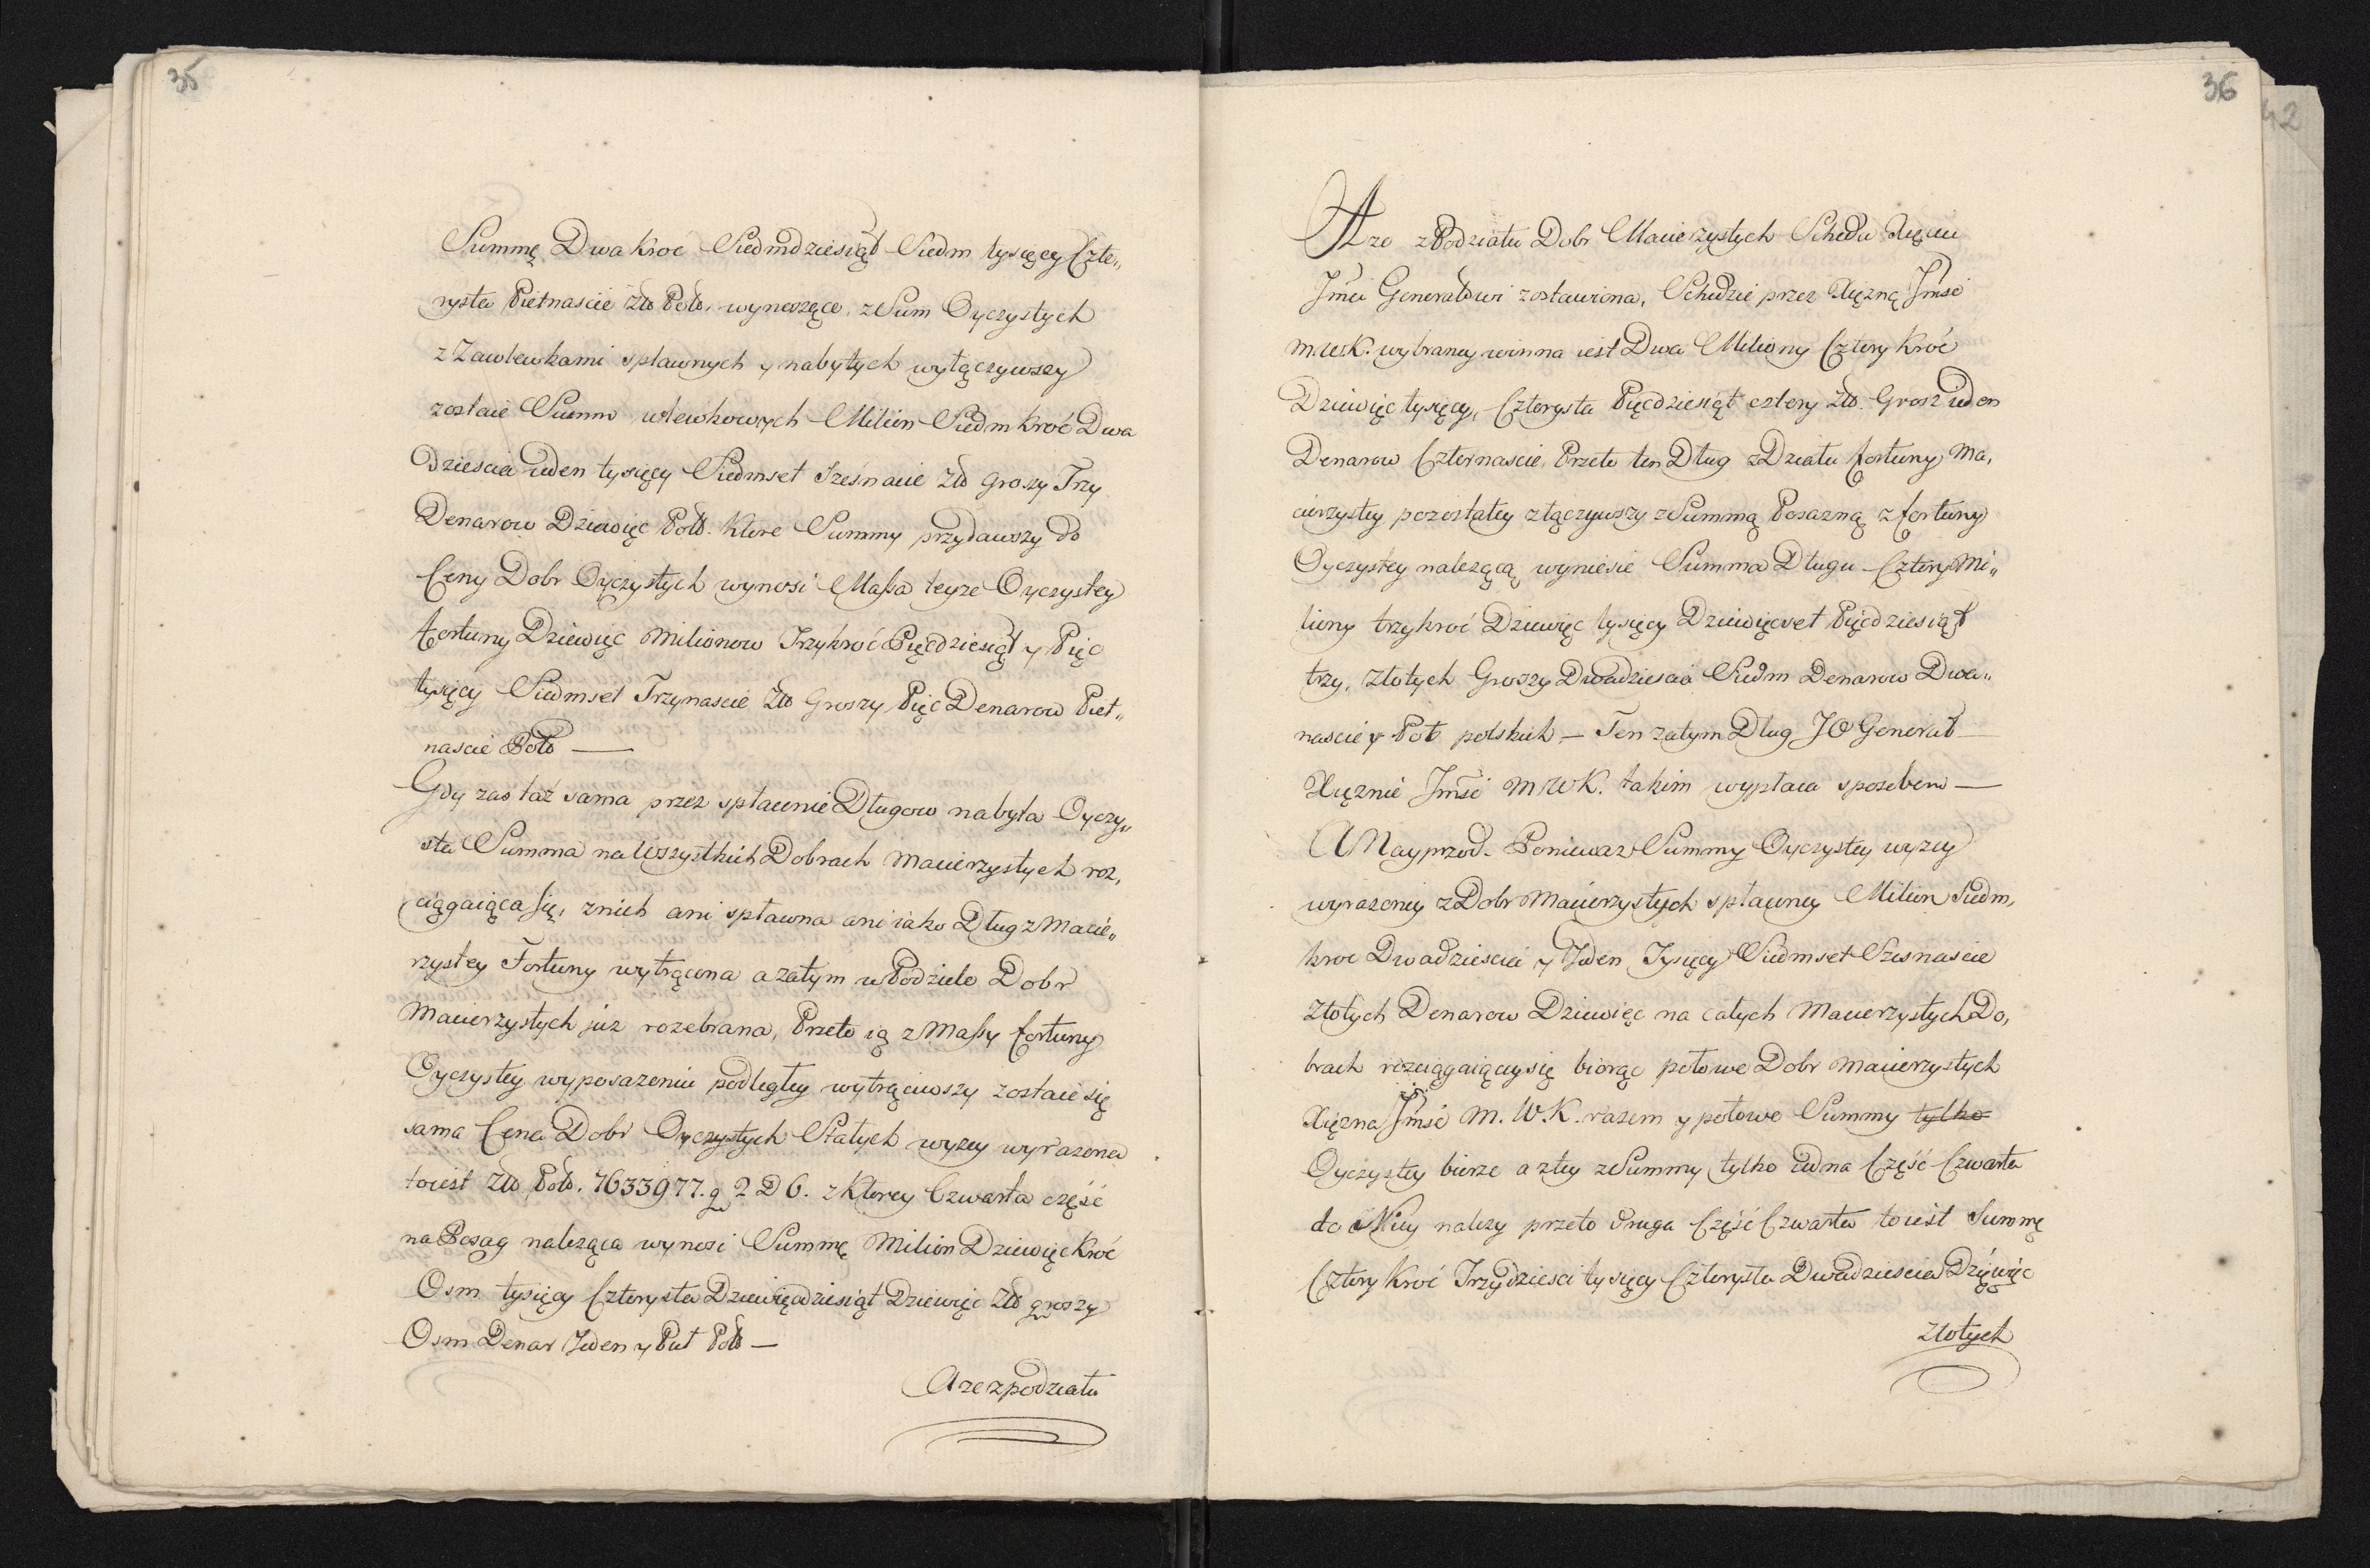 35
Summę Dwakroć Siedmdziesiąt Siedm tysięcy Czte„
rysta Pietnascie Zło Pols. wynoszące, z Sum Oyczystych
z Zawlewkami spławnych y nabytych wyłączywszy
zostaie Summ wlewkowych Milion Siedmkroć Dwa
dziescia ieden tysięcy Siedmset Szesnacie Zło groszy Trzy
Denarow Dziewięc Pols. Ktore Summy przydawszy do
Ceny Dobr Oyczystych wynosi Massa teyze Oyczystey
fortuny Dziewięc Milionow Trzykroć Pięcdziesiąt y Pięc
tysięcy Siedmset Trzynascie Zło Groszy Pięc Denarow Piet„
nascie Pols —
Gdy zas taż sama przez spłacenie Długow nabyta Oyczy„
sta Summa na Wszystkich Dobrach Macierzystych roz,
ciągaiąca się, znich ani spławna ani iako Dług z Macie„
rzystey Fortuny wytrącona a zatym w Podziele Dobr
Macierzystych iuz rozebrana, Przeto ią z Massy fortuny
Oyczystey wyposazeniu podległey wytrąciwszy zostaie się
sama Cena Dobr Oyczystych Stałych wyzey wyrazona
toiest Zło Pols. 7633977. g 2 D 6. z Ktorey Czwarta część
na Posag naleząca wynosi Summę Milion Dziewięckroć
Osm tysięcy Czterysta Dziewięcdziesiąt Dziewięc Zło groszy
Osm Denar Ieden y Puł Pols —
A ze z podziału
36
42
A ze z Podziału Dobr Macierzystych Scheda Xięciu
Jmci Generałowi zostawiona, Schedzie przez Xiężną Jmść
M.W.K. wybraney winna iest Dwa Miliony Cztery Kroć
Dziewięc tysięcy, Czterysta Pięcdziesiąt cztery Zło. Grosz ieden
Denarow Czternascie, Przeto ten Dług z Działu fortuny Ma,
cierzystey pozostałey złączywszy z Summą Posazną z fortuny
Oyczystey nalezącą wyniesie Summa Długu Cztery Mi„
liony trzykroć Dziewięc tysięcy Dziewięcset Pięcdziesiąt
trzy, Złotych Groszy Dwadziescia Siedm Denarow Dwa„
nascie y Poł polskich — Ten zatym Dług JO Generał
Xiężnie Jmści M W K. takim wypłaca sposobem —
A Nayprzod. Poniewaz Summy Oyczystey wyzey
wyrazoney z Dobr Macierzystych spławney Milion Siedm,
kroc Dwadziescia y Ieden Tysięcy Siedmset Szesnascie
Złotych Denarow Dziewięc na całych Macierzystych Do,
brach rozciągaiącey się biorąc połowe Dobr Macierzystych
Xiężna Jmść M. W. K. razem y połowe Summy tylko
Oyczystey bierze a ztey z Summy tylko iedna Część Czwarta
do Niey nalezy przeto druga Część Czwarta toiest Summę
Cztery Kroć Trzydziesci tysięcy Czterysta Dwadziescia Dziewięc
Złotych